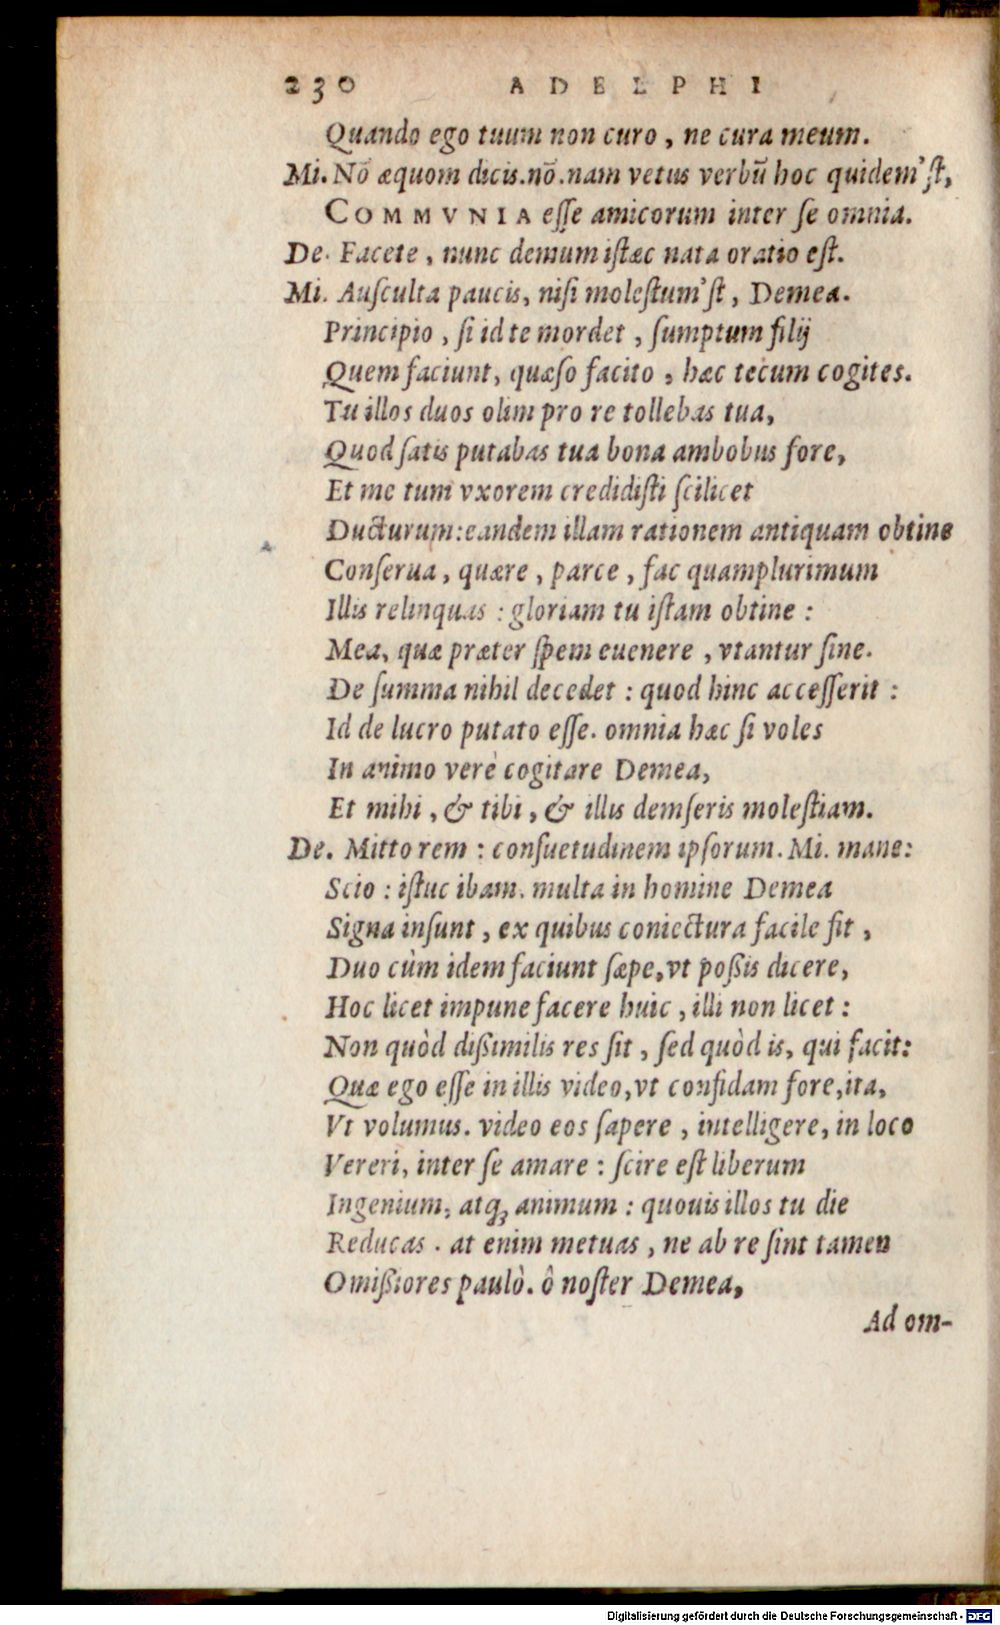 230 ADELPHI
Quando ego tuum non curo, ne cura meum.
Mi. Nō æquom dicis. nō. nam vetus verbū hoc quidem'ſt,
COMMVNIA eſſe amicorum inter ſe omnia.
De. Facete, nunc demum iſtæc nata oratio eſt.
Mi. Auſculta paucis, niſi moleſtum'ſt, Demea.
Principio, ſi id te mordet, ſumptum filij
Quem faciunt, quæſo facito, hæc tecum cogites.
Tu illos duos olim pro re tollebas tua,
Quod ſatis putabas tua bona ambobus fore,
Et me tum vxorem credidiſti ſcilicet
Ducturum: eandem illam rationem antiquam obtine
Conſerua, quære, parce, fac quamplurimum
Illis relinquas: gloriam tu iſtam obtine:
Mea, quæ præter ſpem euenere, vtantur ſine.
De ſumma nihil decedet: quod hinc acceſſerit:
Id de lucro putato eſſe. omnia hæc ſi voles
In animo verè cogitare Demea,
Et mihi, & tibi, & illis demſeris moleſtiam.
De. Mitto rem: conſuetudinem ipſorum. Mi. mane:
Scio: iſtuc ibam. multa in homine Demea
Signa inſunt, ex quibus coniectura facile fit,
Duo cùm idem faciunt ſæpe, vt poßis dicere,
Hoc licet impune facere huic, illi non licet:
Non quòd dißimilis res ſit, ſed quòd is, qui facit:
Quæ ego eſſe in illis video, vt confidam fore, ita,
Vt volumus. video eos ſapere, intelligere, in loco
Vereri, inter ſe amare: ſcire eſt liberum
Ingenium, atq; animum: quouis illos tu die
Reducas. at enim metuas, ne ab re ſint tamen
Omißiores paulò. ô noſter Demea,
Ad om-
Digitalisierung gefördert durch die Deutsche Forschungsgemeinschaft - DFG